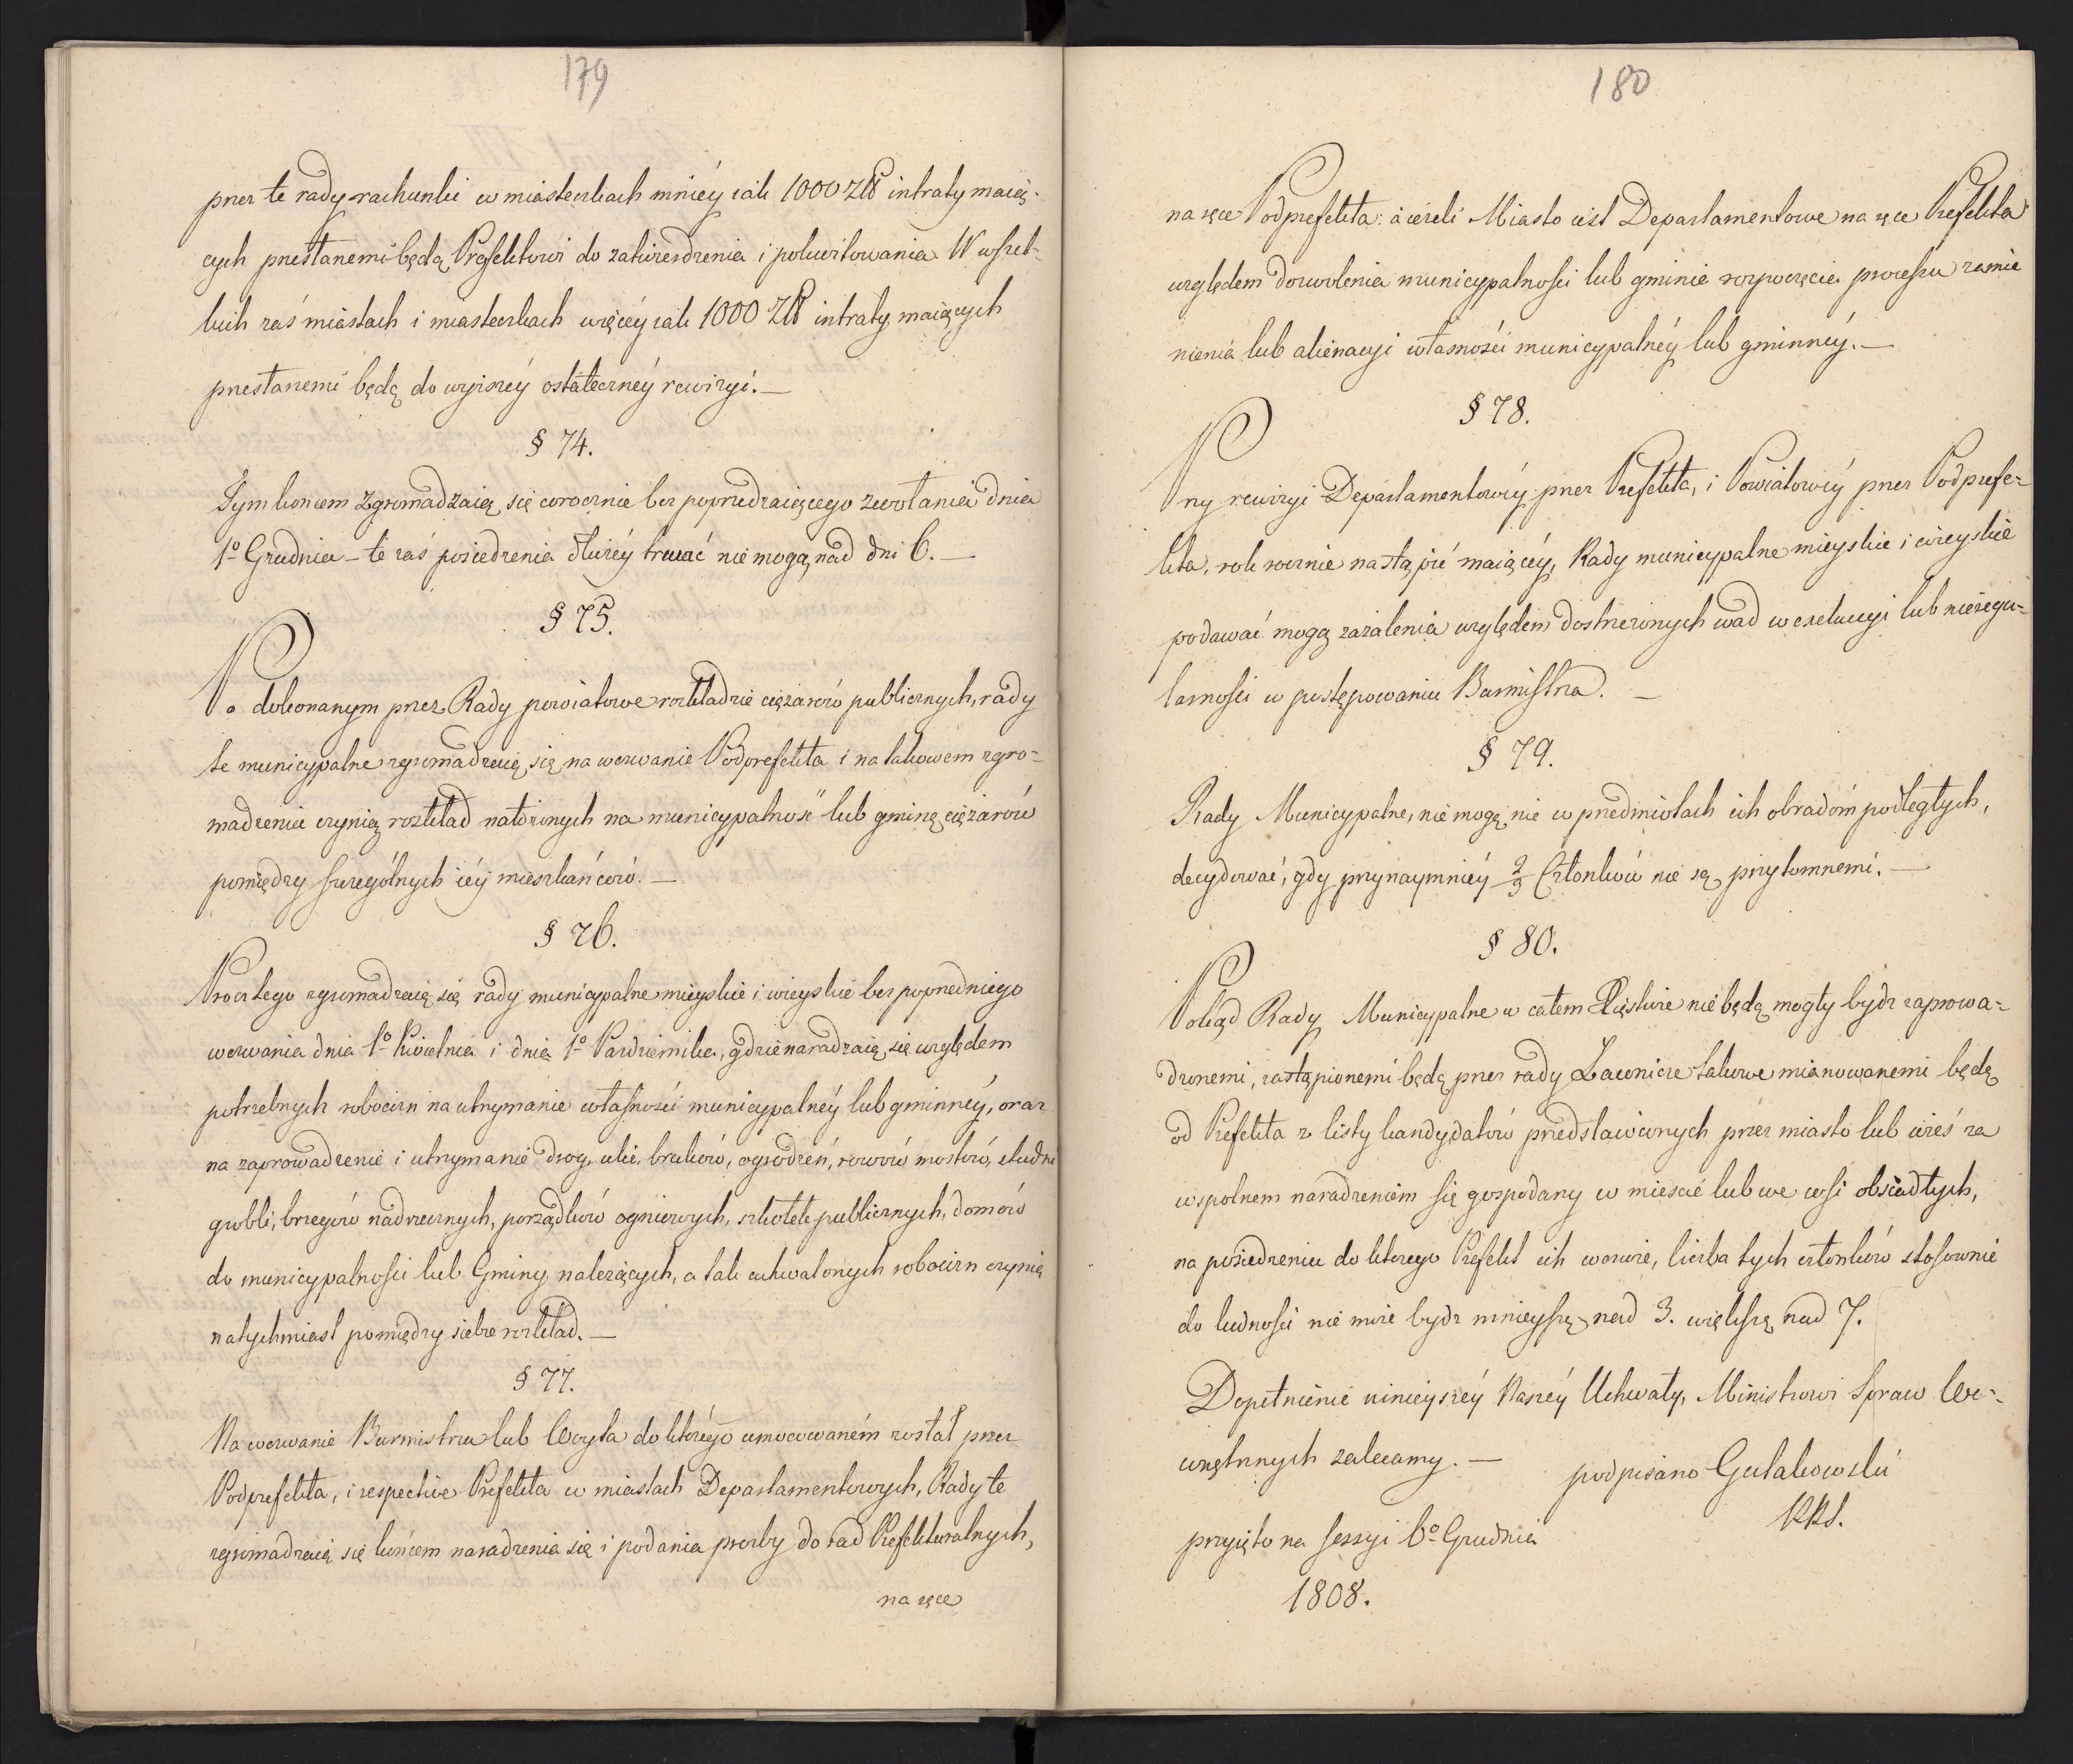 179
przez te rady rachunki w miasteczkach mniéy iak 1000 Złł intraty maią-
cych przesłanemi będą Prefektowi do zatwierdzenia i pokwitowania. W wszel-
kich zaś miastach i miasteczkach więcéy iak 1000 Złł intraty maiących
przesłanemi będą do wyższéy ostatecznéy rewizyi. —
§ 74.
Tym końcem zgromadzaią się corocznie bez poprzedzaiącego zwołania dnia
1º Grudnia – te zaś posiedzenia dłużéy trwać nie mogą nad dni 6. —
§ 75.
Po dokonanym przez Rady powiatowe rozkładzie ciężarów publicznych, rady
te municypalne zgromadzaią się na wezwanie Podprefekta i na takowem zgro-
madzeniu czynią rozkład nałożonych na municypalność lub gminę ciężarów
pomiędzy szczególnych iéy mieszkańców. —
§ 76.
Procz tego zgromadzaią się rady municypalne mieyskie i wieyskie bez poprzedniego
wezwania dnia 1º Kwietnia i dnia 1º Pazdziernika, gdzie naradzaią się względem
potrzebnych robocizn na utrzymanie własności municypalnéy lub gminnéy, oraz
na zaprowadzenie i utrzymanie drog, ulic, bruków, ogrodzeń, rowów mostów, studni
grobli, brzegów nadrzecznych, porządków ogniowych, szkołek publicznych, domów
do municypalności lub Gminy należących, a tak uchwalonych robocizn czynią
natychmiast pomiędzy siebie rozkład. —
§ 77.
Na wezwanie Burmistrza lub Woyta do którégo umocowaném został przez
Podprefekta, i respective Prefekta w miastach Departamentowych, Rady te
zgromadzaią się końcem naradzenia się i podania prozby do rad Prefekturalnych,
na ręce
180
na ręce Podprefekta: a ieżeli Miasto iest Departamentowe na ręce Prefekta
względem dozwolenia municypalności lub gminie rozpoczęcia processu zamie
nienia lub alienacyi własności municypalnéy lub gminnéy. —
§ 78.
Przy rewizyi Departamentowéy przez Prefekta, i Powiatowéy przez Podprefe-
kta, rok rocznie nastąpić maiącéy, Rady municypalne mieyskie i wieyskie
podawać mogą zażalenia względem dostrzeżonych wad w exekucyi lub nieregu-
larności w postępowaniu Burmistrza. —
§ 79.
Rady Municypalne, nie mogą nic w przedmiotach ich obradóm podległych,
decydować, gdy przynaymniéy 2/3 Członków nie są przytomnemi. —
§ 80.
Pokąd Rady Municypalne w całem Xięstwie nie będą mogły bydź zaprowa-
dzonemi, zastąpionemi będą przez rady Ławnicze takowe mianowanemi będą
od Prefekta z listy kandydatów przedstawionych przez miasto lub wieś za
wspolnem naradzeniem się gospodarzy w mieście lub we wsi obsiadłych,
na posiedzeniu do ktorego Prefekt ich wezwie, liczba tych członków stosownie
do ludności nie może bydź mnieyszą nad 3. większą nad 7.
Dopełnienie ninieyszéy Naszéy Uchwały, Ministrowi Spraw We-
wnętrznych zalecamy. — podpisano Gutakowski
PRS.
przyięto na sessyi 6º Grudnia
1808.